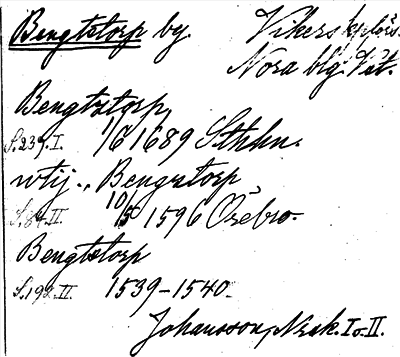 Bengtstorp by. Vikers kplfrs.
Nora blg. Vst.
Bengtztorp,
S.239.I. 1/6 1689 Sthlm.
wtij.., Bengztorp
S.84.II. 10/5 1596 Örebro.
Bengtstorp
S.192.II. 1539-1540.
Johansson, Nask. I o. II.